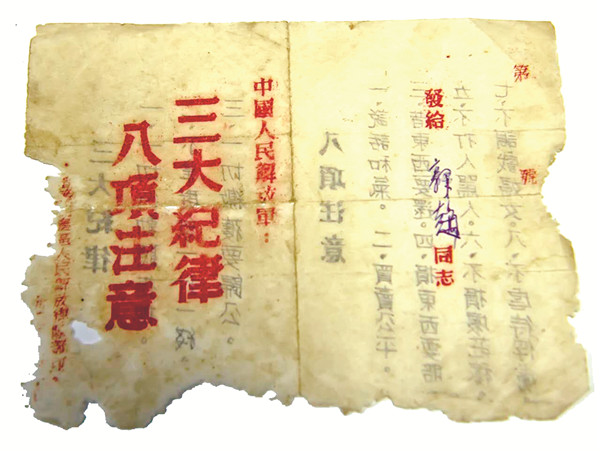 第 號
發給 同志
中國人民解放軍：
三大紀律
八項注意
三大紀律
三、一切繳獲要歸公。
八項注意
一、說話和氣。二、買賣公平。
三、借東西要還。四、損東西要賠
五、不打人罵人。六、不損壞莊稼。
七、不調戲婦女。八、不虐待俘